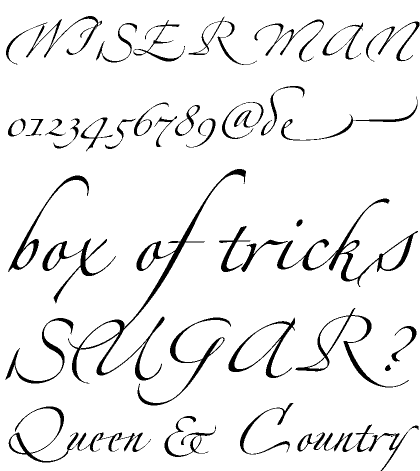 WISER MAN
0123456789@de
box of tricks
SUGAR?
Queen & Country